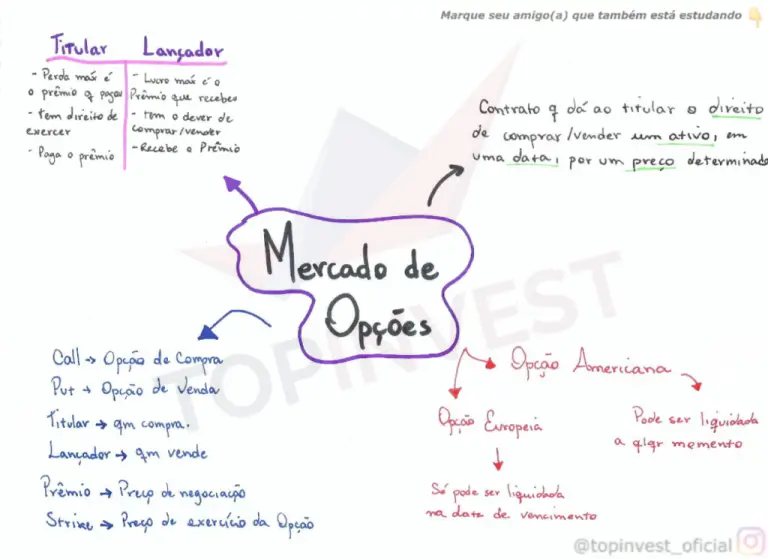 Marque seu amigo(a) que também está estudando
Titular Lançador
- Perda máx é
o prêmio q pagou
- tem direito de
exercer
- Paga o prêmio
- Lucro máx é o
Prêmio que recebeu
- tem o dever de
comprar/vender
- Recebe o Prêmio
Contrato q dá ao titular o direito
de comprar/vender um ativo, em
uma data, por um preço determinado
Mercado de
Opções
Call → Opção de Compra
Put → Opção de Venda
Titular → qm compra.
Lançador → qm vende
Prêmio → Preço de negociação
Strike → Preço de exercício da Opção
Opção Americana
Pode ser liquidada
a qlqr momento
Opção Europeia
Só pode ser liquidada
na data de vencimento
TOPINVEST
@topinvest_oficial